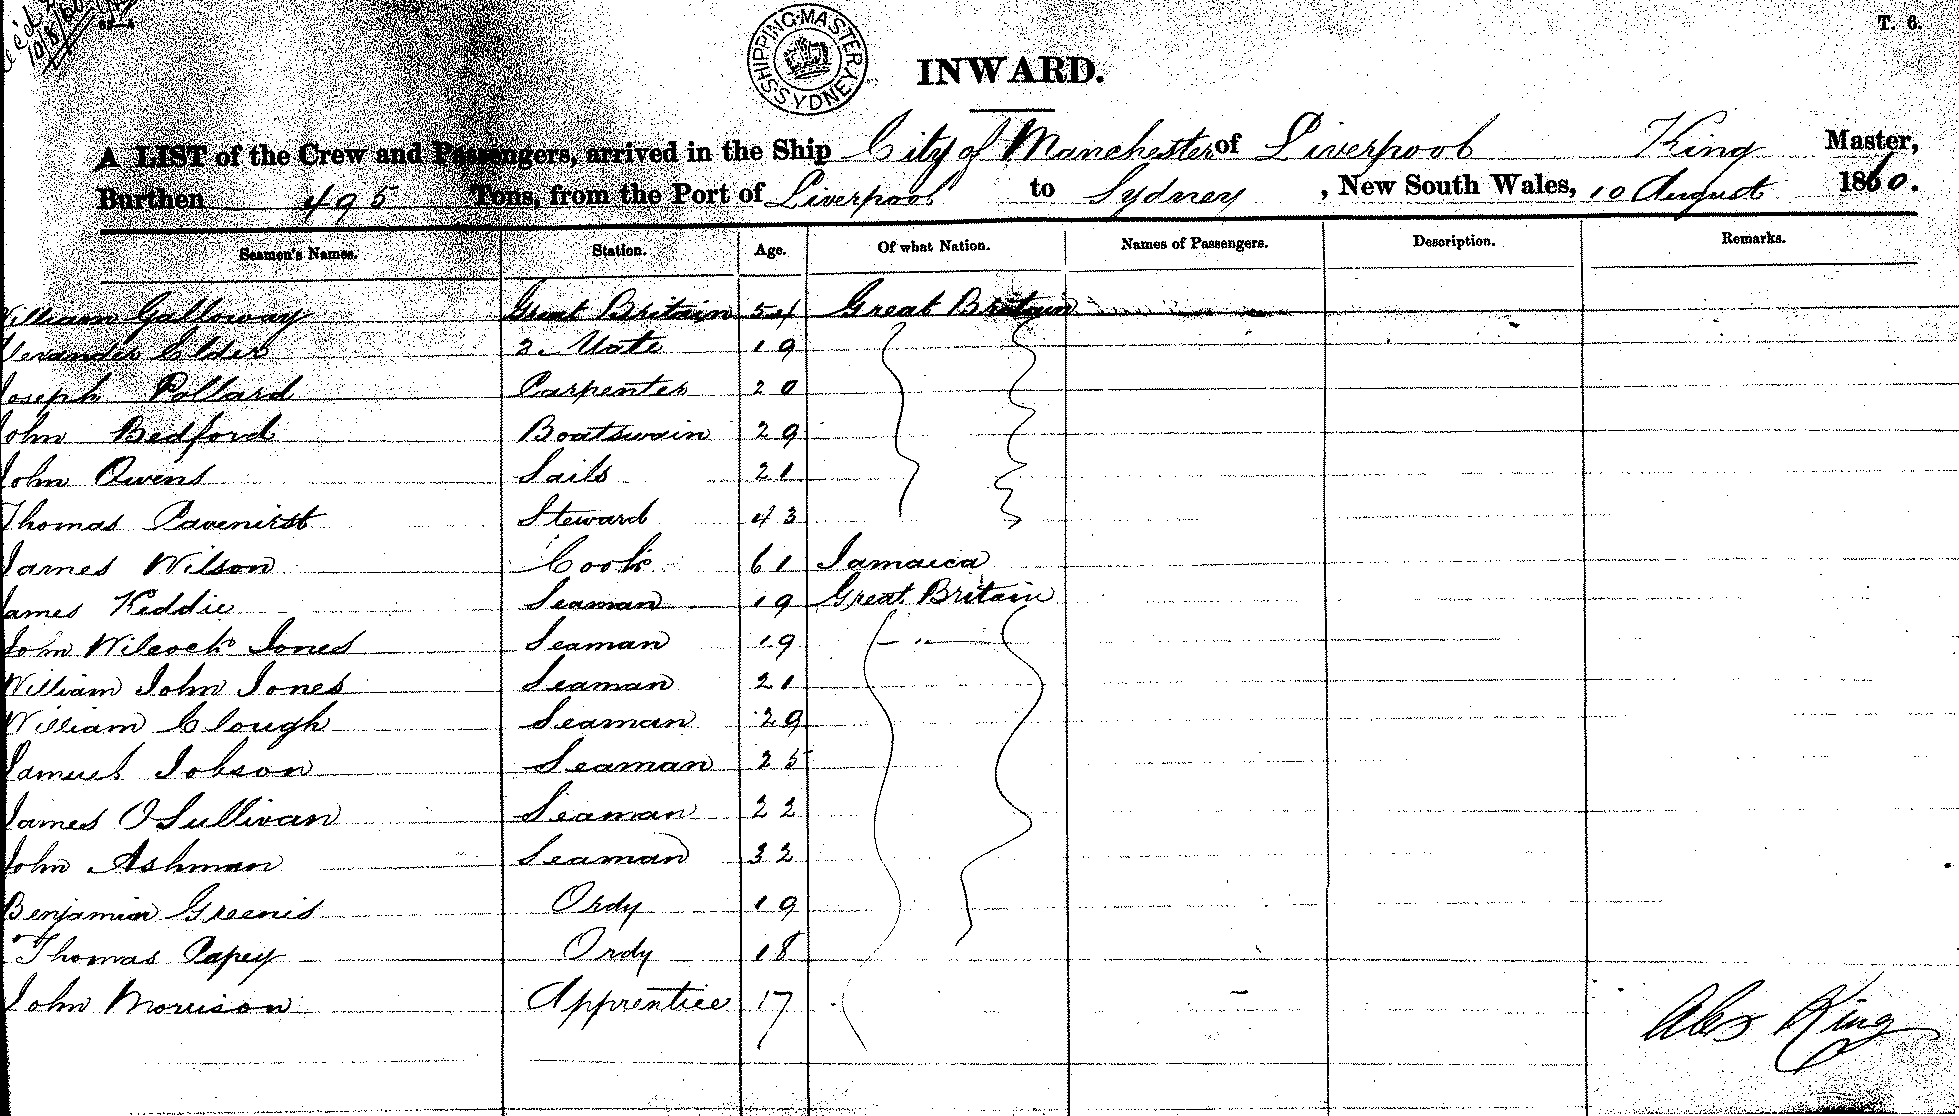 T. 6.
SHIPPING MASTER SYDNEY
INWARD.
A LIST of the Crew and Passengers, arrived in the Ship City of Manchester of Liverpool King Master,
Burthen 495 Tons, from the Port of Liverpool to Sydney, New South Wales, 10 August 1860.
Seamen's Names. Station. Age. Of what Nation. Names of Passengers. Description. Remarks.
William Galloway Great Britain 54 Great Britain
Alexander Elder 2. Mate 19
Joseph Pollard Carpenter 20
John Bedford Boatswain 29
John Owens Sails 21
Thomas Steward 43
James Wilson Cook 61 Jamaica
James Keddie Seaman 19 Great Britain
John Wilcock Jones Seaman 19 — " —
William John Jones Seaman 21
William Clough Seaman 29
Samuel Jobson Seaman 25
James OSullivan Seaman 22
John Ashman Seaman 32
Benjamin Greenis Ordy 19
Thomas Papey Ordy 18
John Morrison Apprentice 17
Alex King